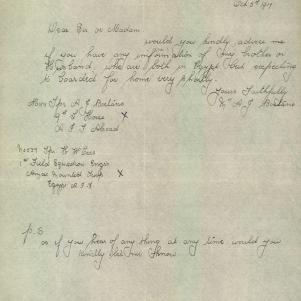 Oct 5th 1917
Dear Sir or Madam
would you kindly advise me
if you have any information of my brother or
Husband, who are both in Egypt and expecting
to boarded for home very shortly.
Yours Faithfully
A. J.
Tpr A J
9th L Horse X
A I F Abroad
Tpr H W
1st Field Squadron Engrs
Anzac Mounted Troop X
Egypt A.I.F.
p.s
or if you hear of any thing at any time would you
kindly let me know